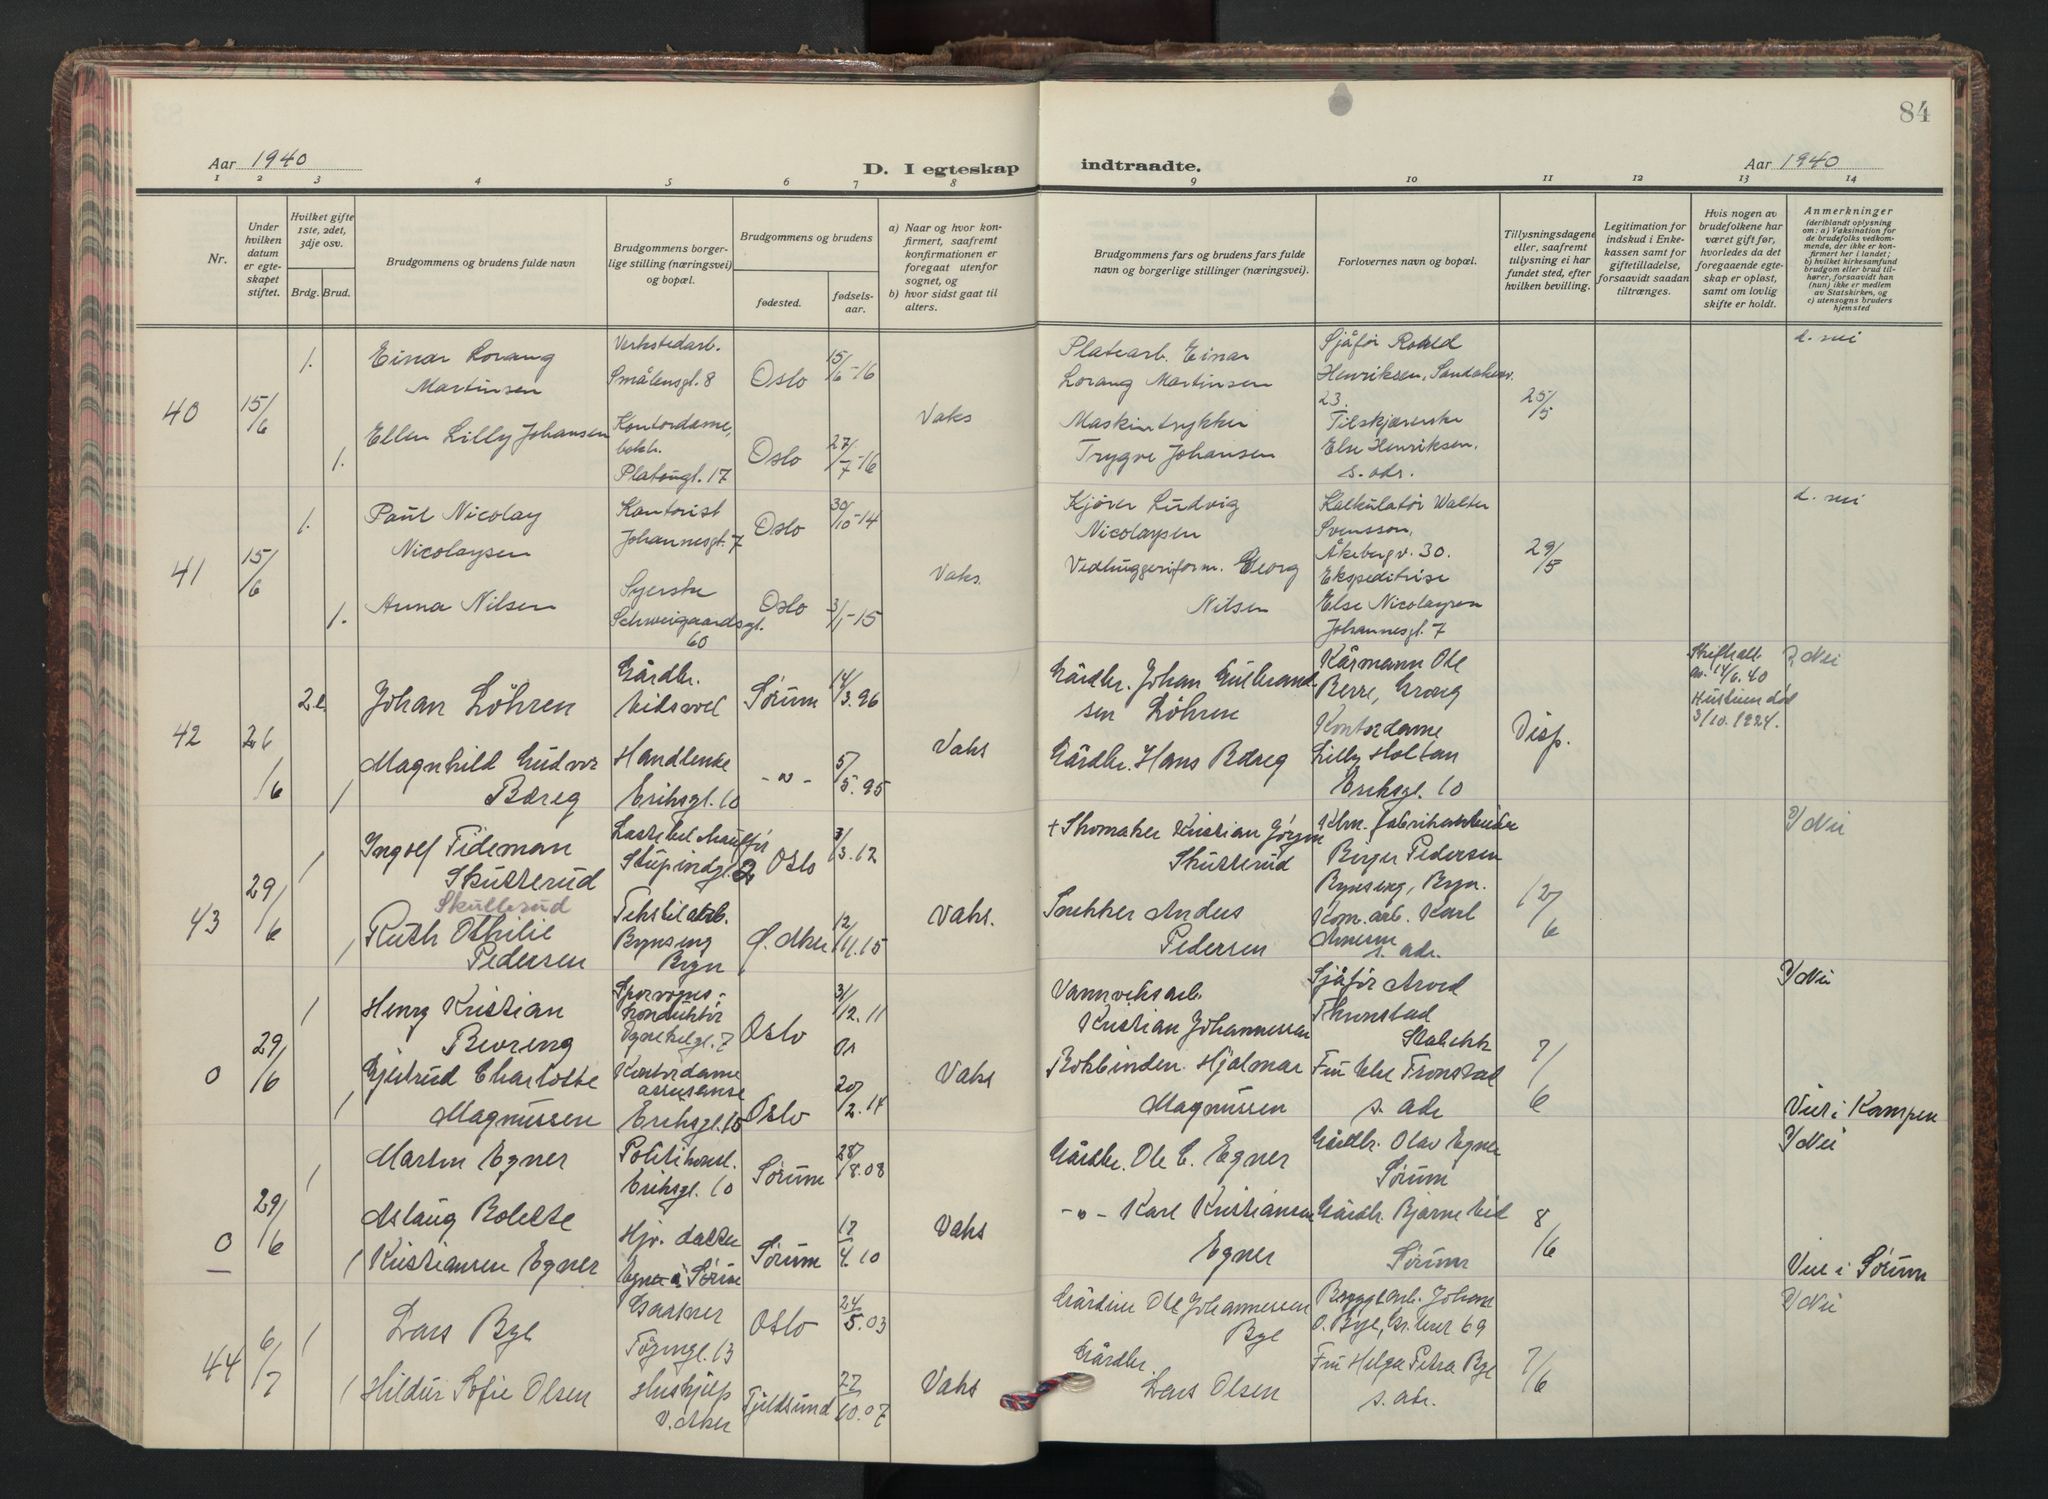 84
Aar 1940
D. I egteskap
indtraadte.
Aar 1940
1 2 3 4 5 6 7 8 9 10 11 12 13 14
Nr.
Under hvilken datum er egteskapet stiftet.
Hvilket gifte 1ste, 2det, 3dje osv.
Brdg. Brud.
Brudgommens og brudens fulde navn
Brudgommens borgerlige stilling (næringsvei) og bopæl.
Brudgommens og brudens
fødested.
fødselsaar.
a) Naar og hvor konfirmert, saafremt konfirmationen er foregaat utenfor sognet, og
b) hvor sidst gaat til alters.
Brudgommens fars og brudens fars fulde navn og borgerlige stillinger (næringsvei).
Forlovernes navn og bopæl.
Tillysningsdagene eller, saafremt tillysning ei har fundet sted, efter hvilken bevilling.
Legitimation for indskud i Enkekassen samt for giftetilladelse, forsaavidt saadan tiltrænges.
Hvis nogen av brudefolkene har været gift før, hvorledes da det foregaaende egteskap er opløst, samt om lovlig skifte er holdt.
Anmerkninger
(deriblandt oplysning om: a) Vaksination for de brudefolks vedkommende, der ikke er konfirmert her i landet; b) hvilket kirkesamfund brudgom eller brud tilhører, forsaavidt han (hun) ikke er medlem av Statskirken, og c) utensogns bruders hjemsted
40
15/6
1.
Einar Lorang
Martinsen
Verkstedarb.
Smålensgt. 8
Oslo
15/6-16
1.
Ellen Lilly Johansen
Kontordame,
Platougt. 17
Oslo
27/7-16
Vaks
Platearb. Einar
Lorang Martinsen
Maskintrykker
Trygve Johansen
Sjåfør Roald
Henriksen, Sandakerv.
23.
Tilskjærerske
Else Henriksen,
s. adr.
25/5
d. nei
41
15/6
1.
Paul Nicolay
Nicolaysen
Kontorist
Johannesgt. 7
Oslo
30/10-14
1.
Anna Nilsen
Syerske
Schweigaardsgt.
60
Oslo
3/1-15
Vaks.
Kjører Ludvig
Nicolaysen
Vedhuggeriform. Georg
Nilsen
Kalkulatør Walter
Svensson,
Åkebergv. 30.
Ekspeditrise
Else Nicolaysen
Johannesgt. 7
29/5
d. nei
42
26/6
2.
Johan Løhren
Gårdbr.
Eidsvoll
Sørum
14/3.96
1
Magnhild Gudvor
Børeg
Handlende
Eriksgt. 10
-"-
5/5.95
Vaks
Gårdbr. Johan Gulbrand-
sen Løhren
Gårdbr. Hans Børeg
Kårmann Ole
Berre,
Kontordame
Lilly Holtan
Eriksgt. 10
Disp.
Skifteatt.
av. 14/6.40
Hustruen død
3/10.1924.
d/ Nei
43
29/6
1
Ingolf Tideman
Skutterud
Skullerud
Lastebilchauffør
Stupindgt. 2
Oslo
3/3.12
1
Ruth Othilie
Pedersen
Tekstilarb.
Bynseng
Bryn
Ø. Aker
12/11.15
Vaks.
+ Skomaker Kristian Jørgen
Skutterud
Snekker Anders
Pedersen
Fabrikkarbeider
Birger Pedersen
Bynseng, Bryn.
Kom. arb. Karl
Arnesen
s. adr.
12/6
d/ Nei
0
29/6
1
Henry Kristian
Bevreng
Sporvogns-
konduktør
Oslo
3/12.11
1
Gjertrud Charlotte
Magnussen
Kontordame
Eriksgt. 10
Oslo
20/2.14
Vaks
Vannverksarb.
Kristian Johannessen
Bokbinder. Hjalmar
Magnussen
Sjåfør Arvid
Thronstad
Stabekk
Fru Else Tronstad
s. adr
7/6
d/ Nei
Viet i Kampen
0
29/6
1
Martin Egner
Politikonst.
Eriksgt. 10
Sørum
28/8.08
1
Aslaug Bolette
Kristiansen Egner
Hjv. datter
Egner i Sørum
Sørum
17/4.10
Vaks
Gårdbr. Ole C. Egner
-"- Karl Kristiansen
Egner
Gårdbr. Olav Egner
Sørum
Gårdbr. Bjarne Eid
Sørum
8/6
d/ Nei
Viet i Sørum
44
6/7
1
Lars Bye
Gartner
Tøyengt. 13
Oslo
24/5.03
1
Hildur Sofie Olsen
Hushjelp
V. Aker
Tjeldsund
27/10.07
Vaks
Ole Johannessen
Bye
Gårdbr.
Lars Olsen
Bryggearb. Johan
O. Bye,
Fru Helga Petra Bye
s. adr.
7/6
d/ Nei